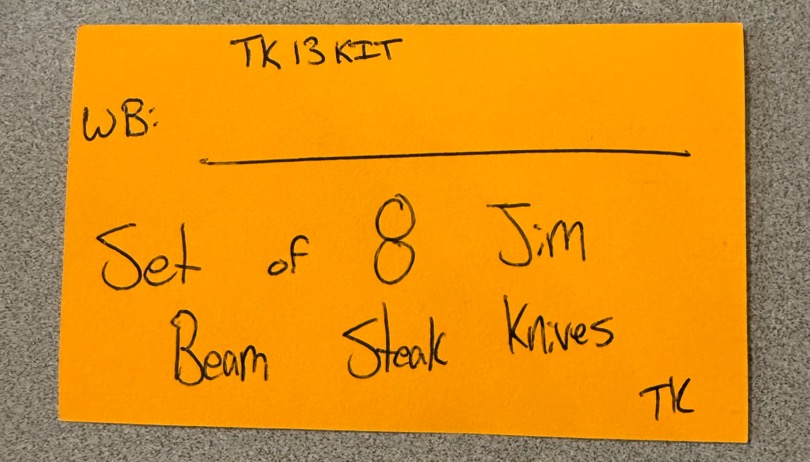 TK 13 KIT
WB:
Set of 8 Jim
Beam Steak Knives
TK